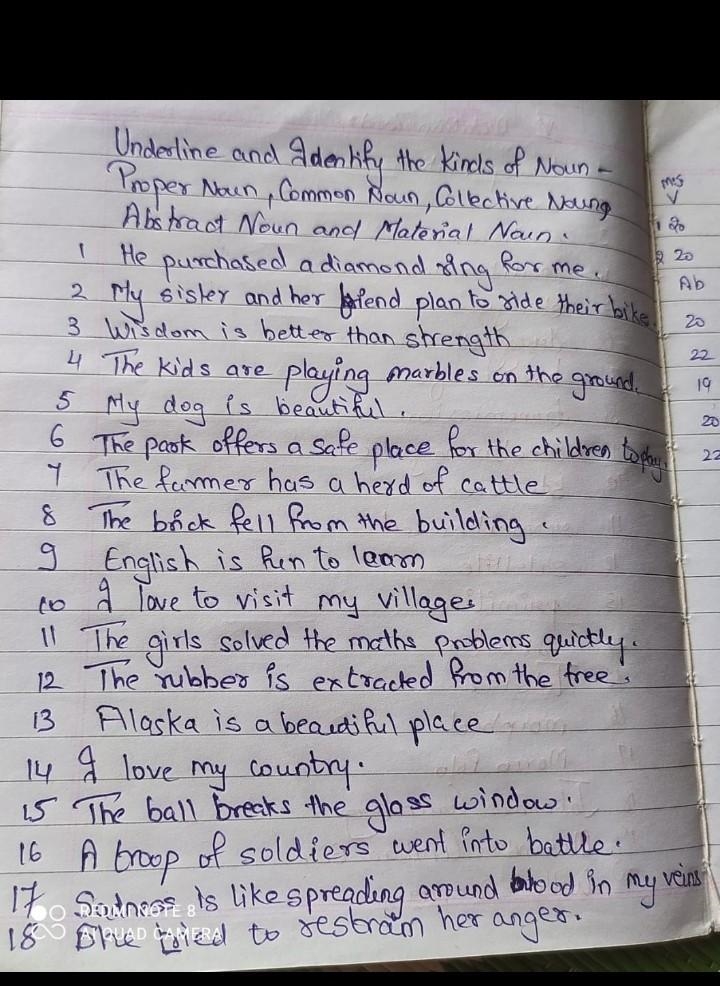 Underline and Identify the kinds of Noun -
Proper Noun, Common Noun, Collective Noung
Abstract Noun and Material Noun.
1 He purchased a diamond ring for me.
2 My sister and her friend plan to ride their bike.
3 Wisdom is better than strength
4 The kids are playing marbles on the ground.
5 My dog is beautiful.
6 The park offers a safe place for the children to play.
7 The farmer has a herd of cattle
8 The brick fell from the building.
9 English is fun to learn
10 I love to visit my villages
11 The girls solved the maths problems quickly.
12 The rubber is extracted from the tree.
13 Alaska is a beautiful place
14 I love my country.
15 The ball breaks the glass window.
16 A troop of soldiers went into battle.
17 Sadness is like spreading around blood in my veins
18 She tried to restrain her anger.
REDMI NOTE 8
AI QUAD CAMERA
1 20
2 20
Ab
20
22
19
20
22